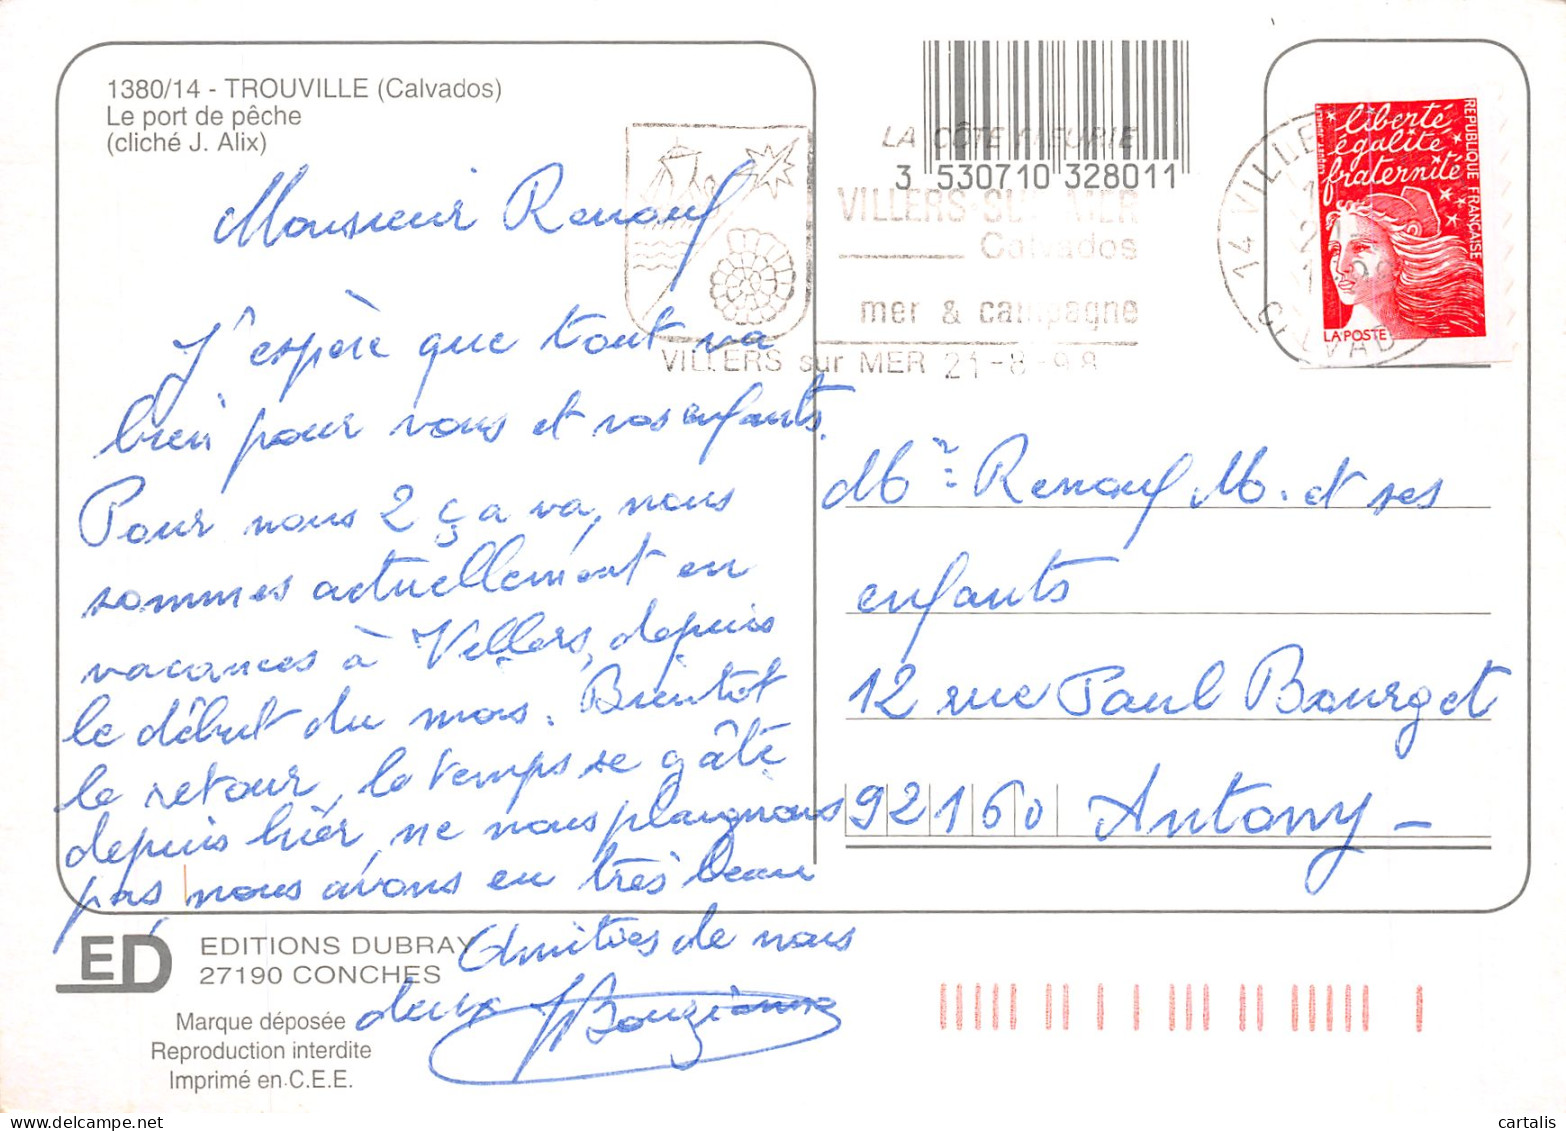 1380/14 - TROUVILLE (Calvados)
Le port de pêche
(cliché J. Alix)
Monsieur Renouf
J'espère que tout va
bien pour vous et vos enfants.
Pour nous 2 ça va, nous
sommes actuellement en
vacances à Villers, depuis
le début du mois. Bientôt
le retour, le temps se gâte
depuis hier, ne nous plaignons
pas, nous avons eu très beau
Amitiés de nous
deux
EDITIONS DUBRAY
27190 CONCHES
ED
Marque déposée
Reproduction interdite
Imprimé en C.E.E.
LA CÔTE FLEURIE
3 530710 328011
VILLERS-SUR-MER
Calvados
mer & campagne
VILLERS sur MER 21-8-98
14 VILLE
liberté
égalité
fraternité
REPUBLIQUE FRANÇAISE
LA POSTE
Mr Renouf M. et ses
enfants
12 rue Paul Bourget
92160 Antony -
cartalis